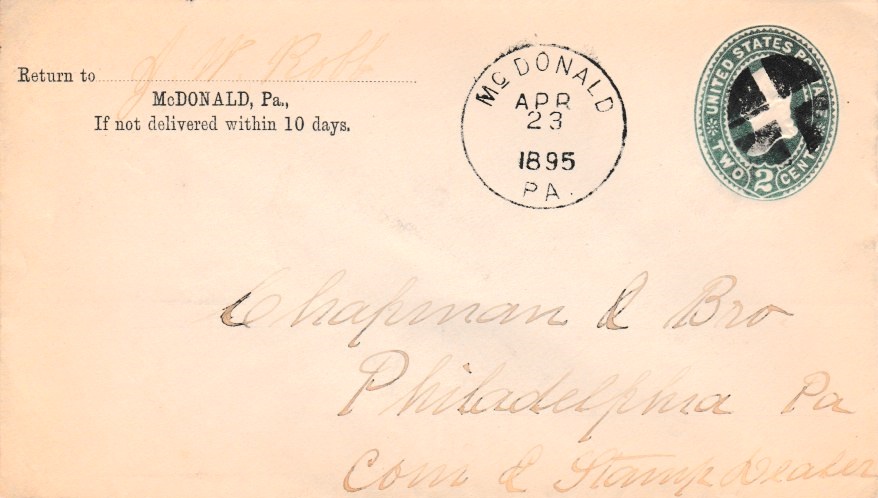 J W Robb
Return to
McDONALD, Pa.,
If not delivered within 10 days.
McDONALD
APR
23
1895
PA.
UNITED STATES POSTAGE
TWO 2 CENTS
Chapman & Bro
Philadelphia Pa
Coin & Stamp Dealer